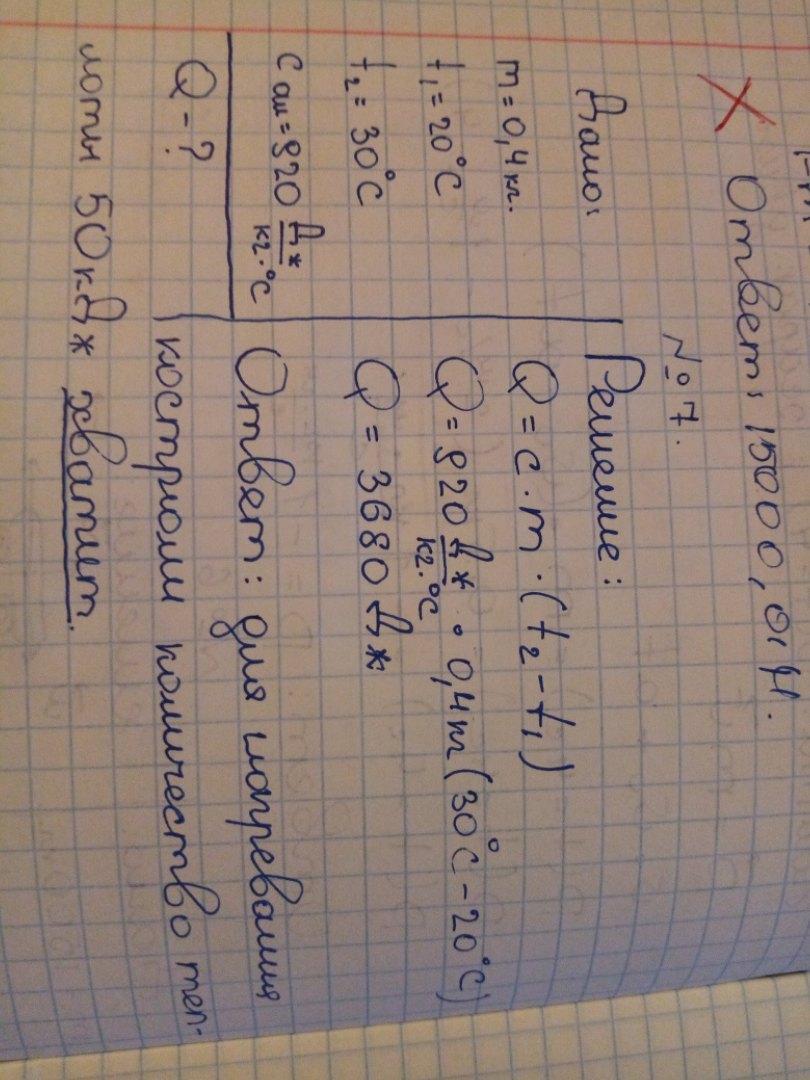 Ответ: 15000,01 Н.
№7.
Дано:
m = 0,4 кг.
t₁ = 20°С
t₂ = 30°С
c ал = 920 Дж/кг·°С
Q - ?
Решение:
Q = c · m · (t₂ - t₁)
Q = 920 Дж/кг·°С · 0,4 кг (30°С - 20°С)
Q = 3680 Дж
Ответ: для нагревания
кострюли количество теп-
лоты 50 кДж хватит.